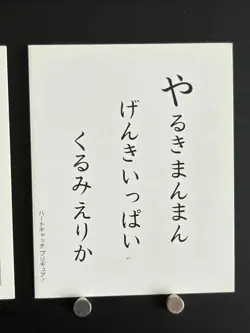 やるきまんまん
げんきいっぱい
くるみえりか
ハートキャッチプリキュア!